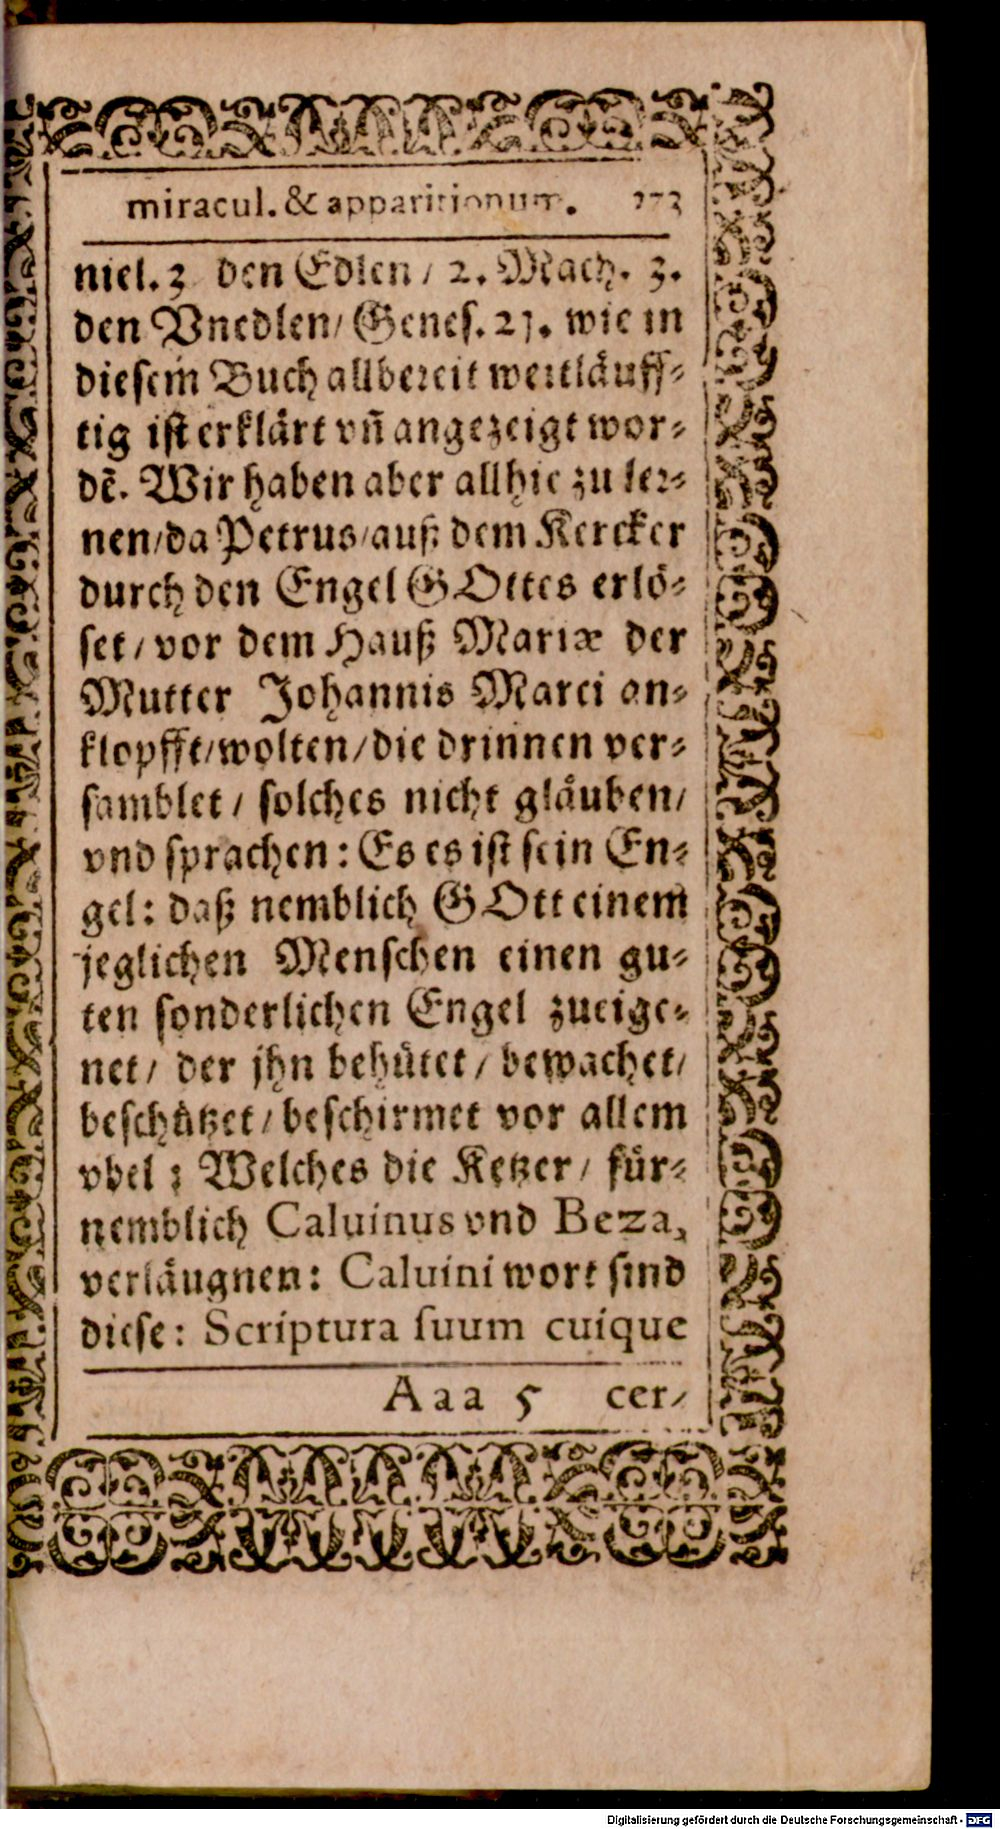 miracul. & apparitionum. 273
niel. 3 den Edlen / 2. Mach. 3.
den Vnedlen / Genes. 21. wie in
diesem Buch allbereit weitläuff-
tig ist erklärt vñ angezeigt wor-
dẽ. Wir haben aber allhie zu ler-
nen / da Petrus / auß dem Kercker
durch den Engel GOttes erlö-
set / vor dem Hauß Mariæ der
Mutter Johannis Marci an-
klopfft / wolten / die drinnen ver-
samblet / solches nicht gläuben /
vnd sprachen : Es es ist sein En-
gel : daß nemblich GOtt einem
jeglichen Menschen einen gu-
ten sonderlichen Engel zueige-
net / der jhn behütet / bewachet /
beschützet / beschirmet vor allem
vbel ; Welches die Ketzer / für-
nemblich Caluinus vnd Beza,
verläugnen : Caluini wort sind
diese : Scriptura suum cuique
Aaa 5 cer-
Digitalisierung gefördert durch die Deutsche Forschungsgemeinschaft - DFG